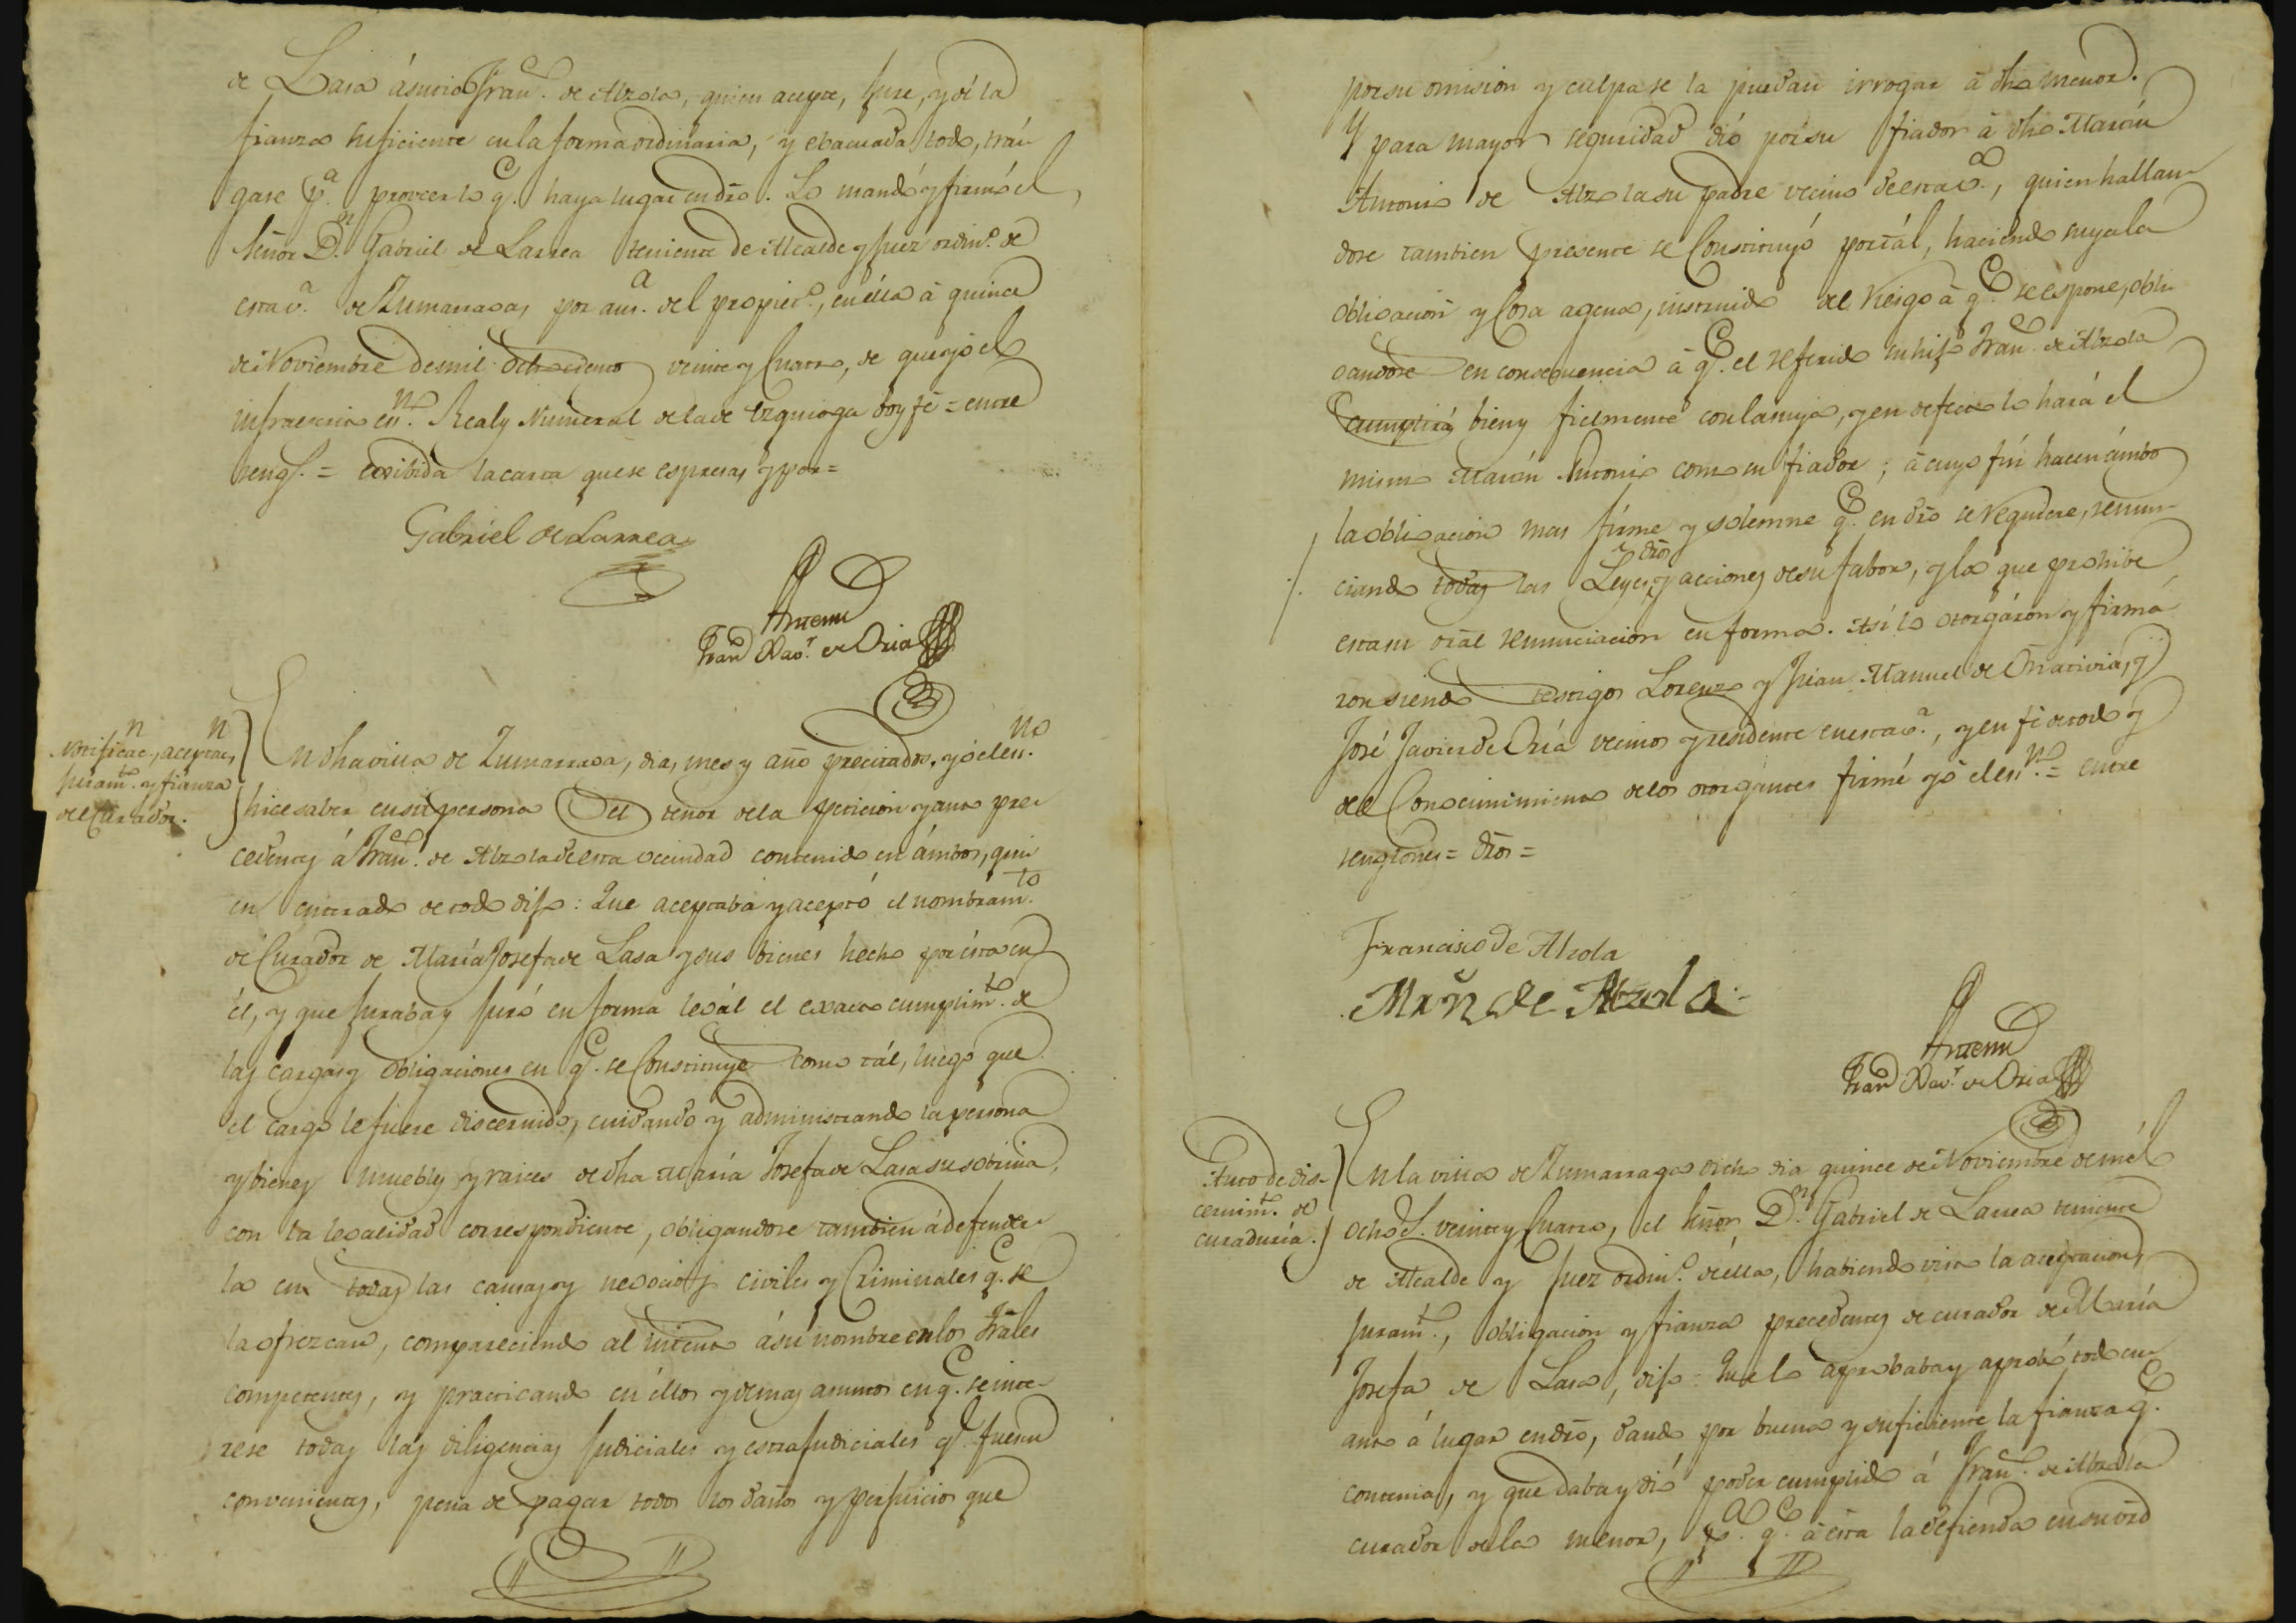 de Lasa á su tio Fran.co de Alzola, quien acepte, jure, y dé la
fianza suficiente en la forma ordinaria, y ebacuada todo, trái-
gase p.a proveer lo q.e haya lugar en dro. Lo mandó y firmó el
Señor D.n Gabriel de Larrea teniente de Alcalde y Juez ordin.o de
esta v.a de Zumarraga, por aus.a del propiet.o, en élla á quince
de Noviembre de mil ochocientos veinte y Cuatro, de que yo el
infraescrito es.no Real y Numeral de la de Ezquioga doy fé = entre
rengs. = exibida la carta que se espresa, y por =
Gabriel de Larrea
Antemi
Fran.co Xav.r de Oria
Notificac.n, aceptac.n,
juram.to y fianza
del Curador.
En dha villa de Zumarraga, dia, mes y año precitados, yo el es.no
hice saber en su persona el tenor de la peticion y auto pre-
cedentes á Fran.co de Alzola de esta vecindad contenido en ámbos, qui-
en enterado de todo dijo: Que aceptaba y aceptó el nombram.to
de Curador de María Josefa de Lasa y sus bienes hecho por ésta en
él, y que juraba y juró en forma legál el exacto cumplim.to de
las cargas y obligaciones en q.e se Constituye como tál, luego que
el cargo le fuere discernido, cuidando y administrando la persona
y bienes muebles y raices de dha María Josefa de Lasa su sobrina,
con la legalidad correspondiente, obligandose tambien á defender-
la en todas las causas y negocios civiles y Criminales q.e se
la ofrezcan, compareciendo al intento á su nombre en los Trâles
competentes, y practicando en éllos y demas asuntos en q.e se inte-
rese todas las diligencias judiciales y estrajudiciales q.e fueren
convenientes, pena de pagar todos los daños y perjuicios que
por su omision y culpa se la puedan irrogar á dha menor.
Y para mayor seguridad dió por su fiador á dho Martin
Antonio de Alzola su padre vecino de esta v.a, quien hallan-
dose tambien presente se Constituyó por tál, haciendo suya la
obligacion y Cosa agena, instruido del riesgo á q.e se espone, obli-
gandose en consequencia á q.e el referido su hijo Fran.co de Alzola
cumplirá bien y fielmente con la suya, y en defecto lo hará el
mismo Martin Antonio como su fiador; á cuyo fin hacen ámbos
la obligacion mas firme y solemne q.e en dro se requiere, renun-
ciando todas las Leyes, dros y acciones de su fabor, y la que prohibe
esta su gral renunciacion en forma. Así lo otorgáron y firmá-
ron siendo testigos Lorenzo y Juan Manuel de Oñativia, y
José Javier de Oria vecinos y residente en esta v.a, y en fé de todo y
del Conocimimiento de los otorgantes firmé yo el es.no = entre
renglones = dros =
Francisco de Alzola
Mrñ de Alzola
Antemi
Fran.co Xav.r de Oria
Auto de dis-
cernim.to de
curaduría.
En la villa de Zumarraga dicho dia quince de Noviembre de mil
ochos. veinte y Cuatro, el Señor D.n Gabriel de Larrea teniente
de Alcalde y Juez ordin.o de élla, habiendo visto la aceptacion,
juram.to, obligacion y fianza precedentes de curador de María
Josefa de Lasa, dijo: Que lo aprobaba y aprobó todo cu-
anto á lugar en dro, dando por buena y suficiente la fianza q.e
contenia, y que daba y dió poder cumplido á Fran.co de Alzola
curador de la menor, p.a q.e á ésta la defienda en su ôrd